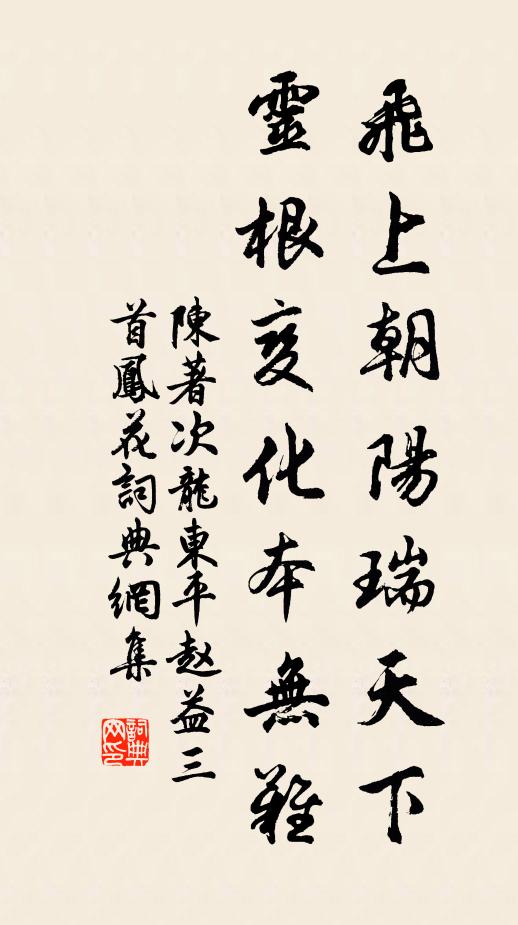 飛上朝陽瑞天下
靈根变化本無難
陳著次龍東平赵益三
首鳳花詞典網集
詞典
网印